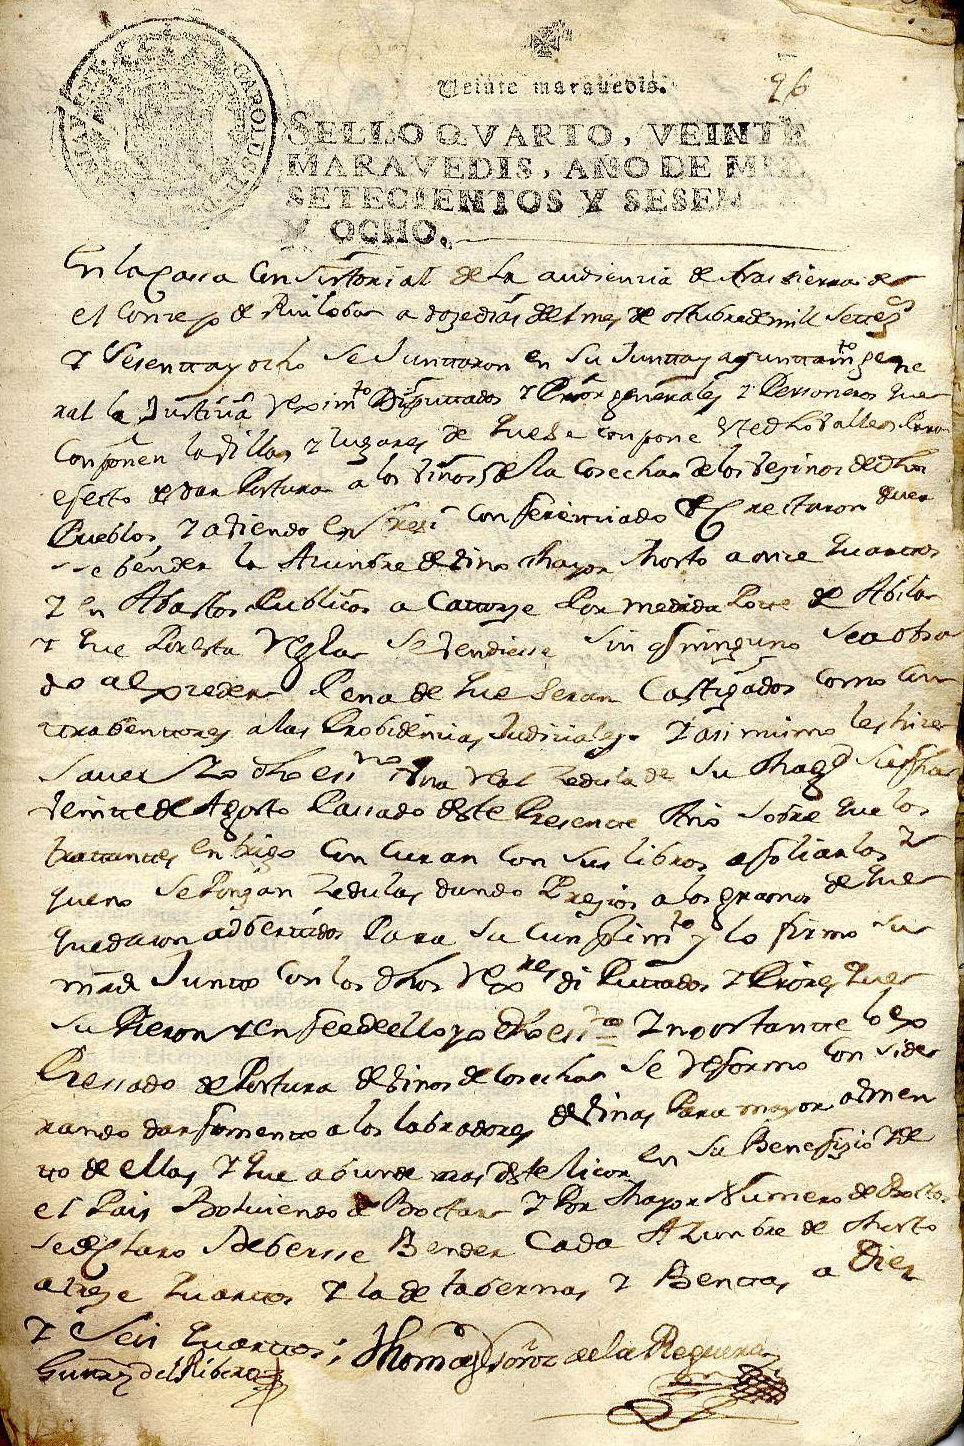 Veinte maravedis.
96
SELLO QVARTO, VEINTE
MARAVEDIS, AÑO DE MIL
SETECIENTOS Y SESEN
Y OCHO.
CAROLUS
En la Cassa Consistorial de la audiencia de trassierra de
el Conzejo de Ruiloba a doze dias del mes de octubre de mill settezs
Y Sesentta y ocho se Junttaron en su Juntta y ayunttamto gene
ral la Justizia reximto Diputtados Y Prores generales Y Personeros que
Conponen la Villa Y lugares de que se conpone este dho Valle Para
efecto de dar Postura a los Vinos de la Cosecha de los Vezinos de dhos
Pueblos, Y aviendo conferenciado decretaron que
se bender la Azunbre de Vino Mayor Mosto a once quartos
Y en Abastos Publicos a Catorze Por medida Pote de Abila
Y que Por esta regla se Vendiesse sin qe ninguno sea osa
do a exceder Pena de que seran Castigados como con
trabenttores a las Probidencias Judiciales. Y asi mismo les hize
saver Yo dho essno Una real zedula de su Magd su fha
Veinte de Agosto Passado deste Presente Año sobre que los
trattantes en trigo con sus libros a foliarlos Y
queno se Pongan zedulas dando Prezios a los granos de que
quedaron adberttidos Para su cunplimto y lo firmo su
mrd Juntto con los dhos rexres diPuttados Y Prores que
suPieron Y en fee de ello yo dho essno Y no ostante lo ex
Pressado de Postura de Vinos de Cosecha se reformo Conside
rando dar fomento a los labradores de Vinas Para mayor aumen
to de ellas Y que abunde mas deste licor en su Benefizio Y de
el Pais Bolviendo a Boctar Y Por Mayor Numero de Boctos
se declaro deberse Bender Cada Azunbre de Mosto
a treze quartos Y la de tabernas Y Bentas a Diez
Y Seis quartos;
Thomas de la Reguera
Guttrz del Ribero